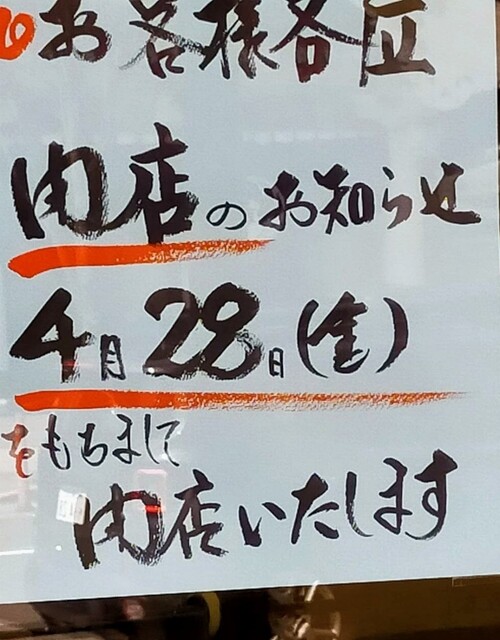 お客様各位
閉店のお知らせ
4月28日(金)
をもちまして
閉店いたします